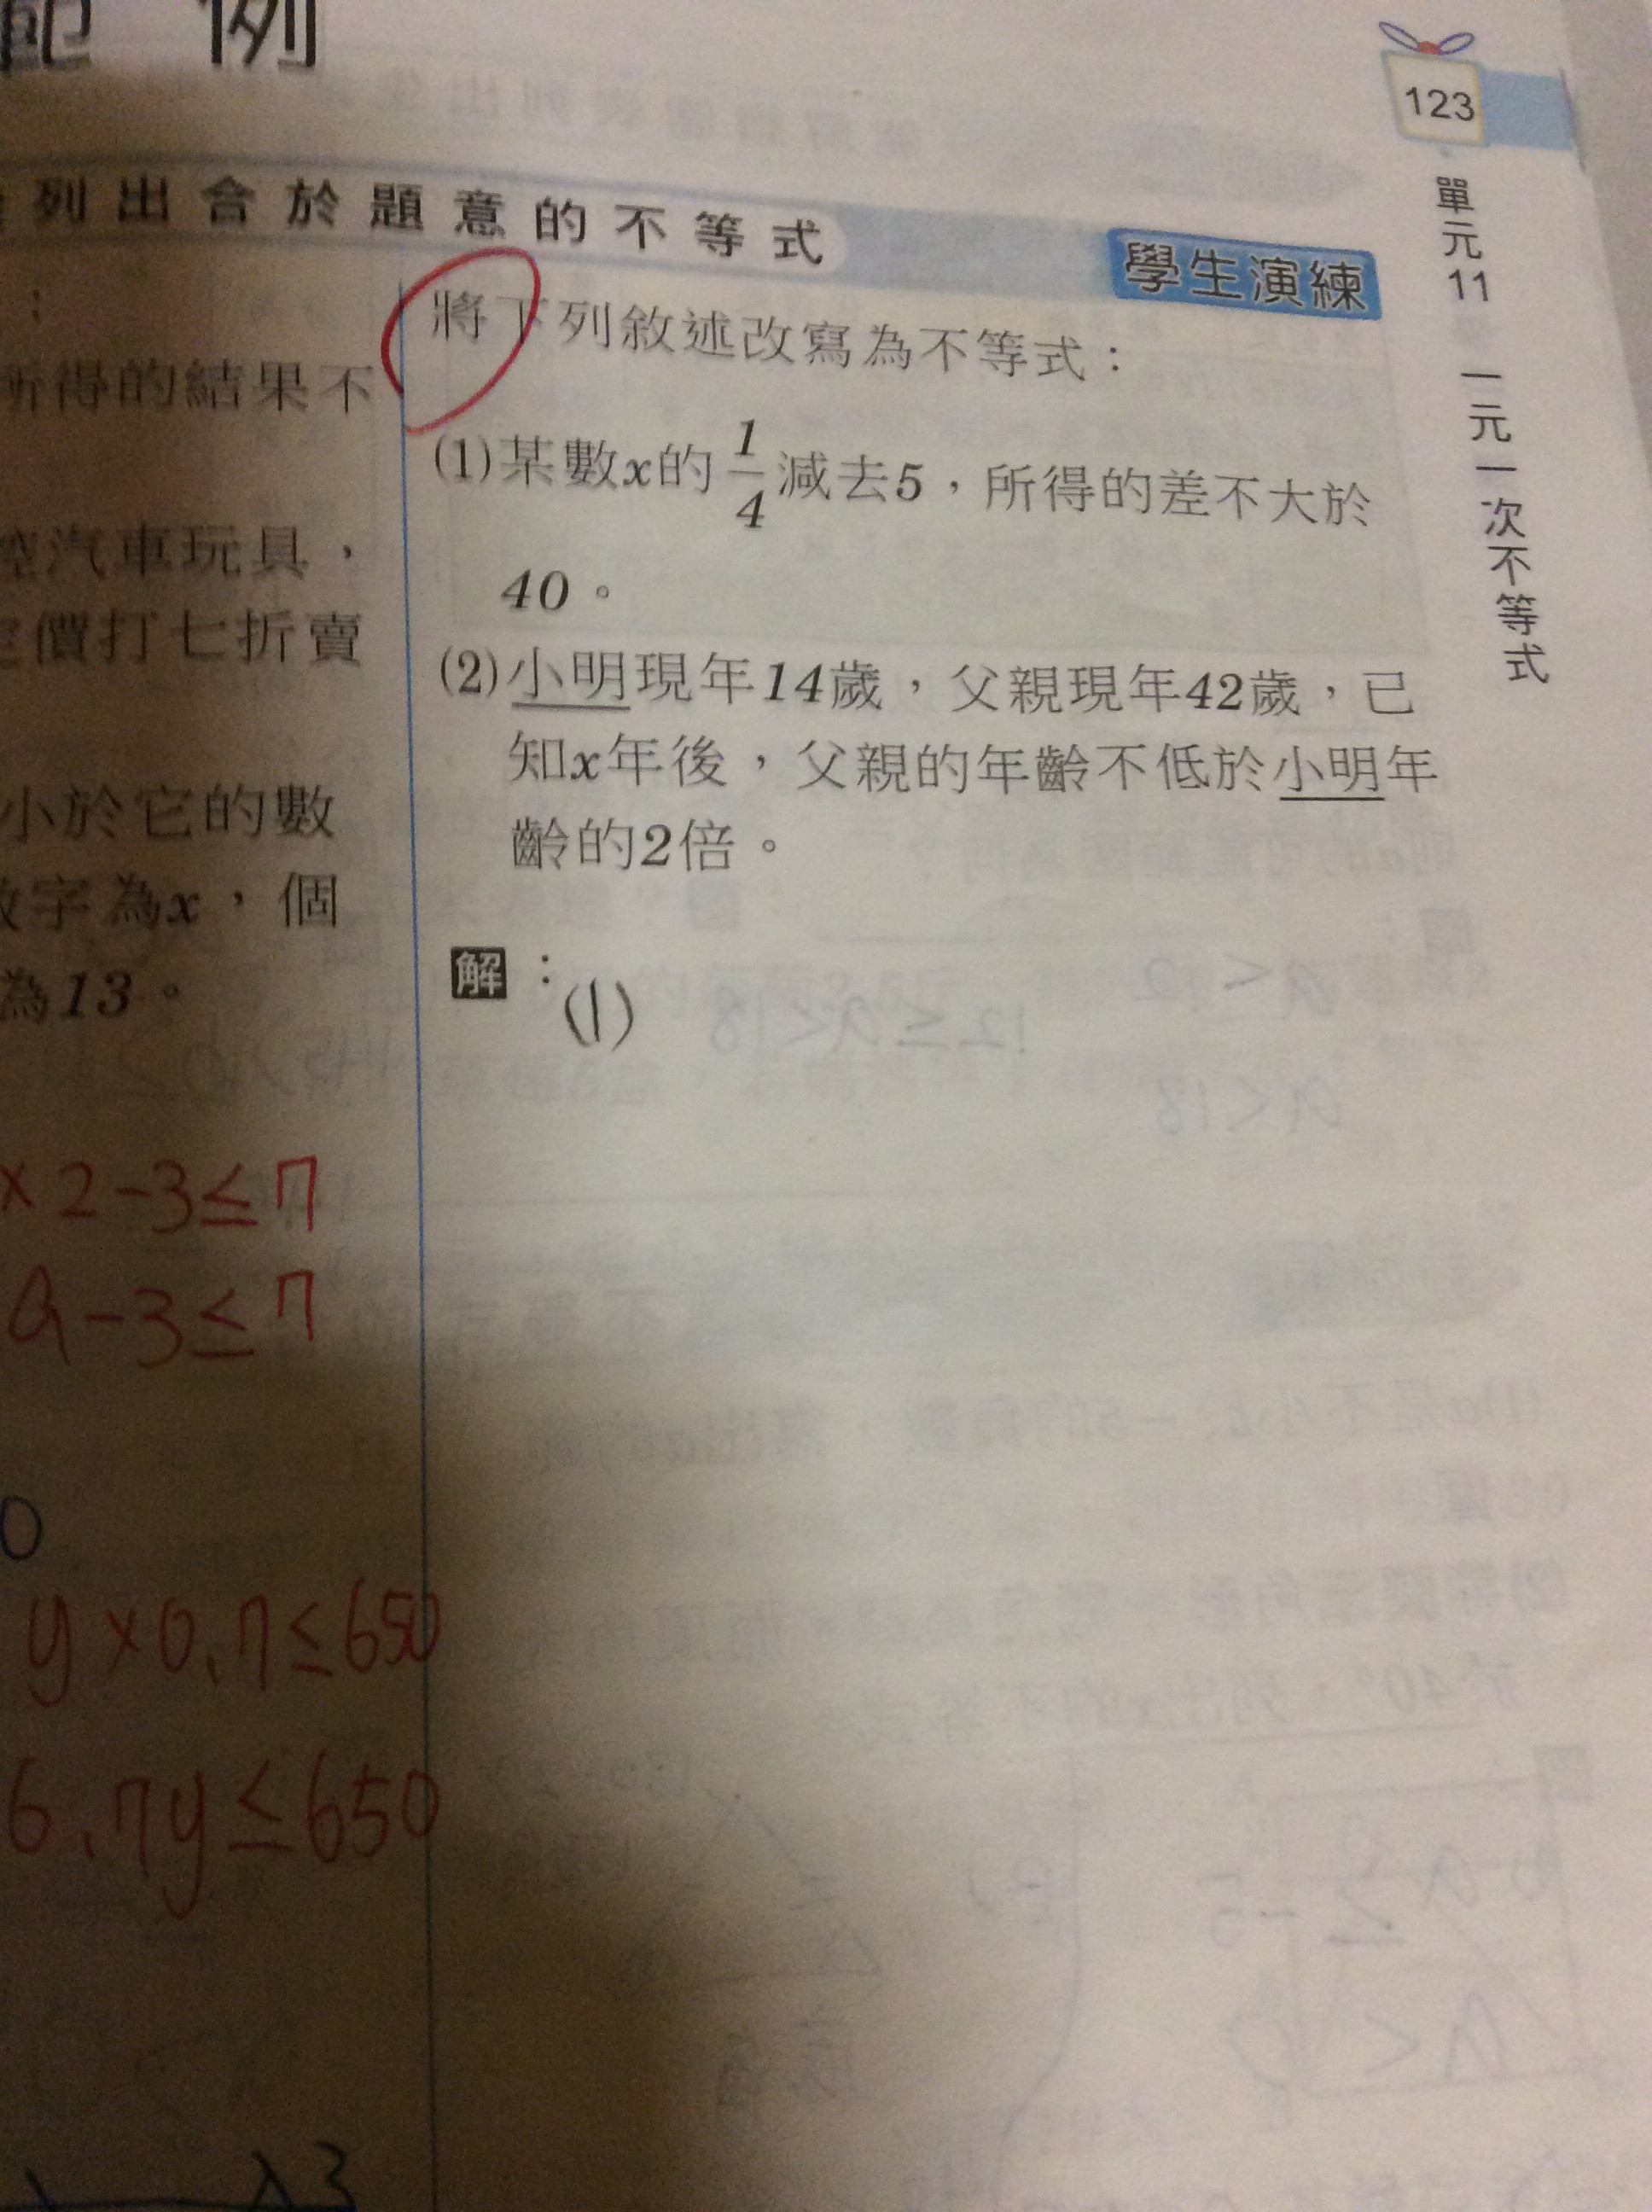 範例
123
列出合於題意的不等式
學生演練
單元11 一元一次不等式
:
所得的結果不
汽車玩具，
價打七折賣
小於它的數
數字為x，個
為13。
×2-3≤7
a-3≤7
0
y×0.7≤650
6.7y≤650
將下列敘述改寫為不等式：
(1)某數x的1/4減去5，所得的差不大於
40。
(2)小明現年14歲，父親現年42歲，已
知x年後，父親的年齡不低於小明年
齡的2倍。
解：(1)